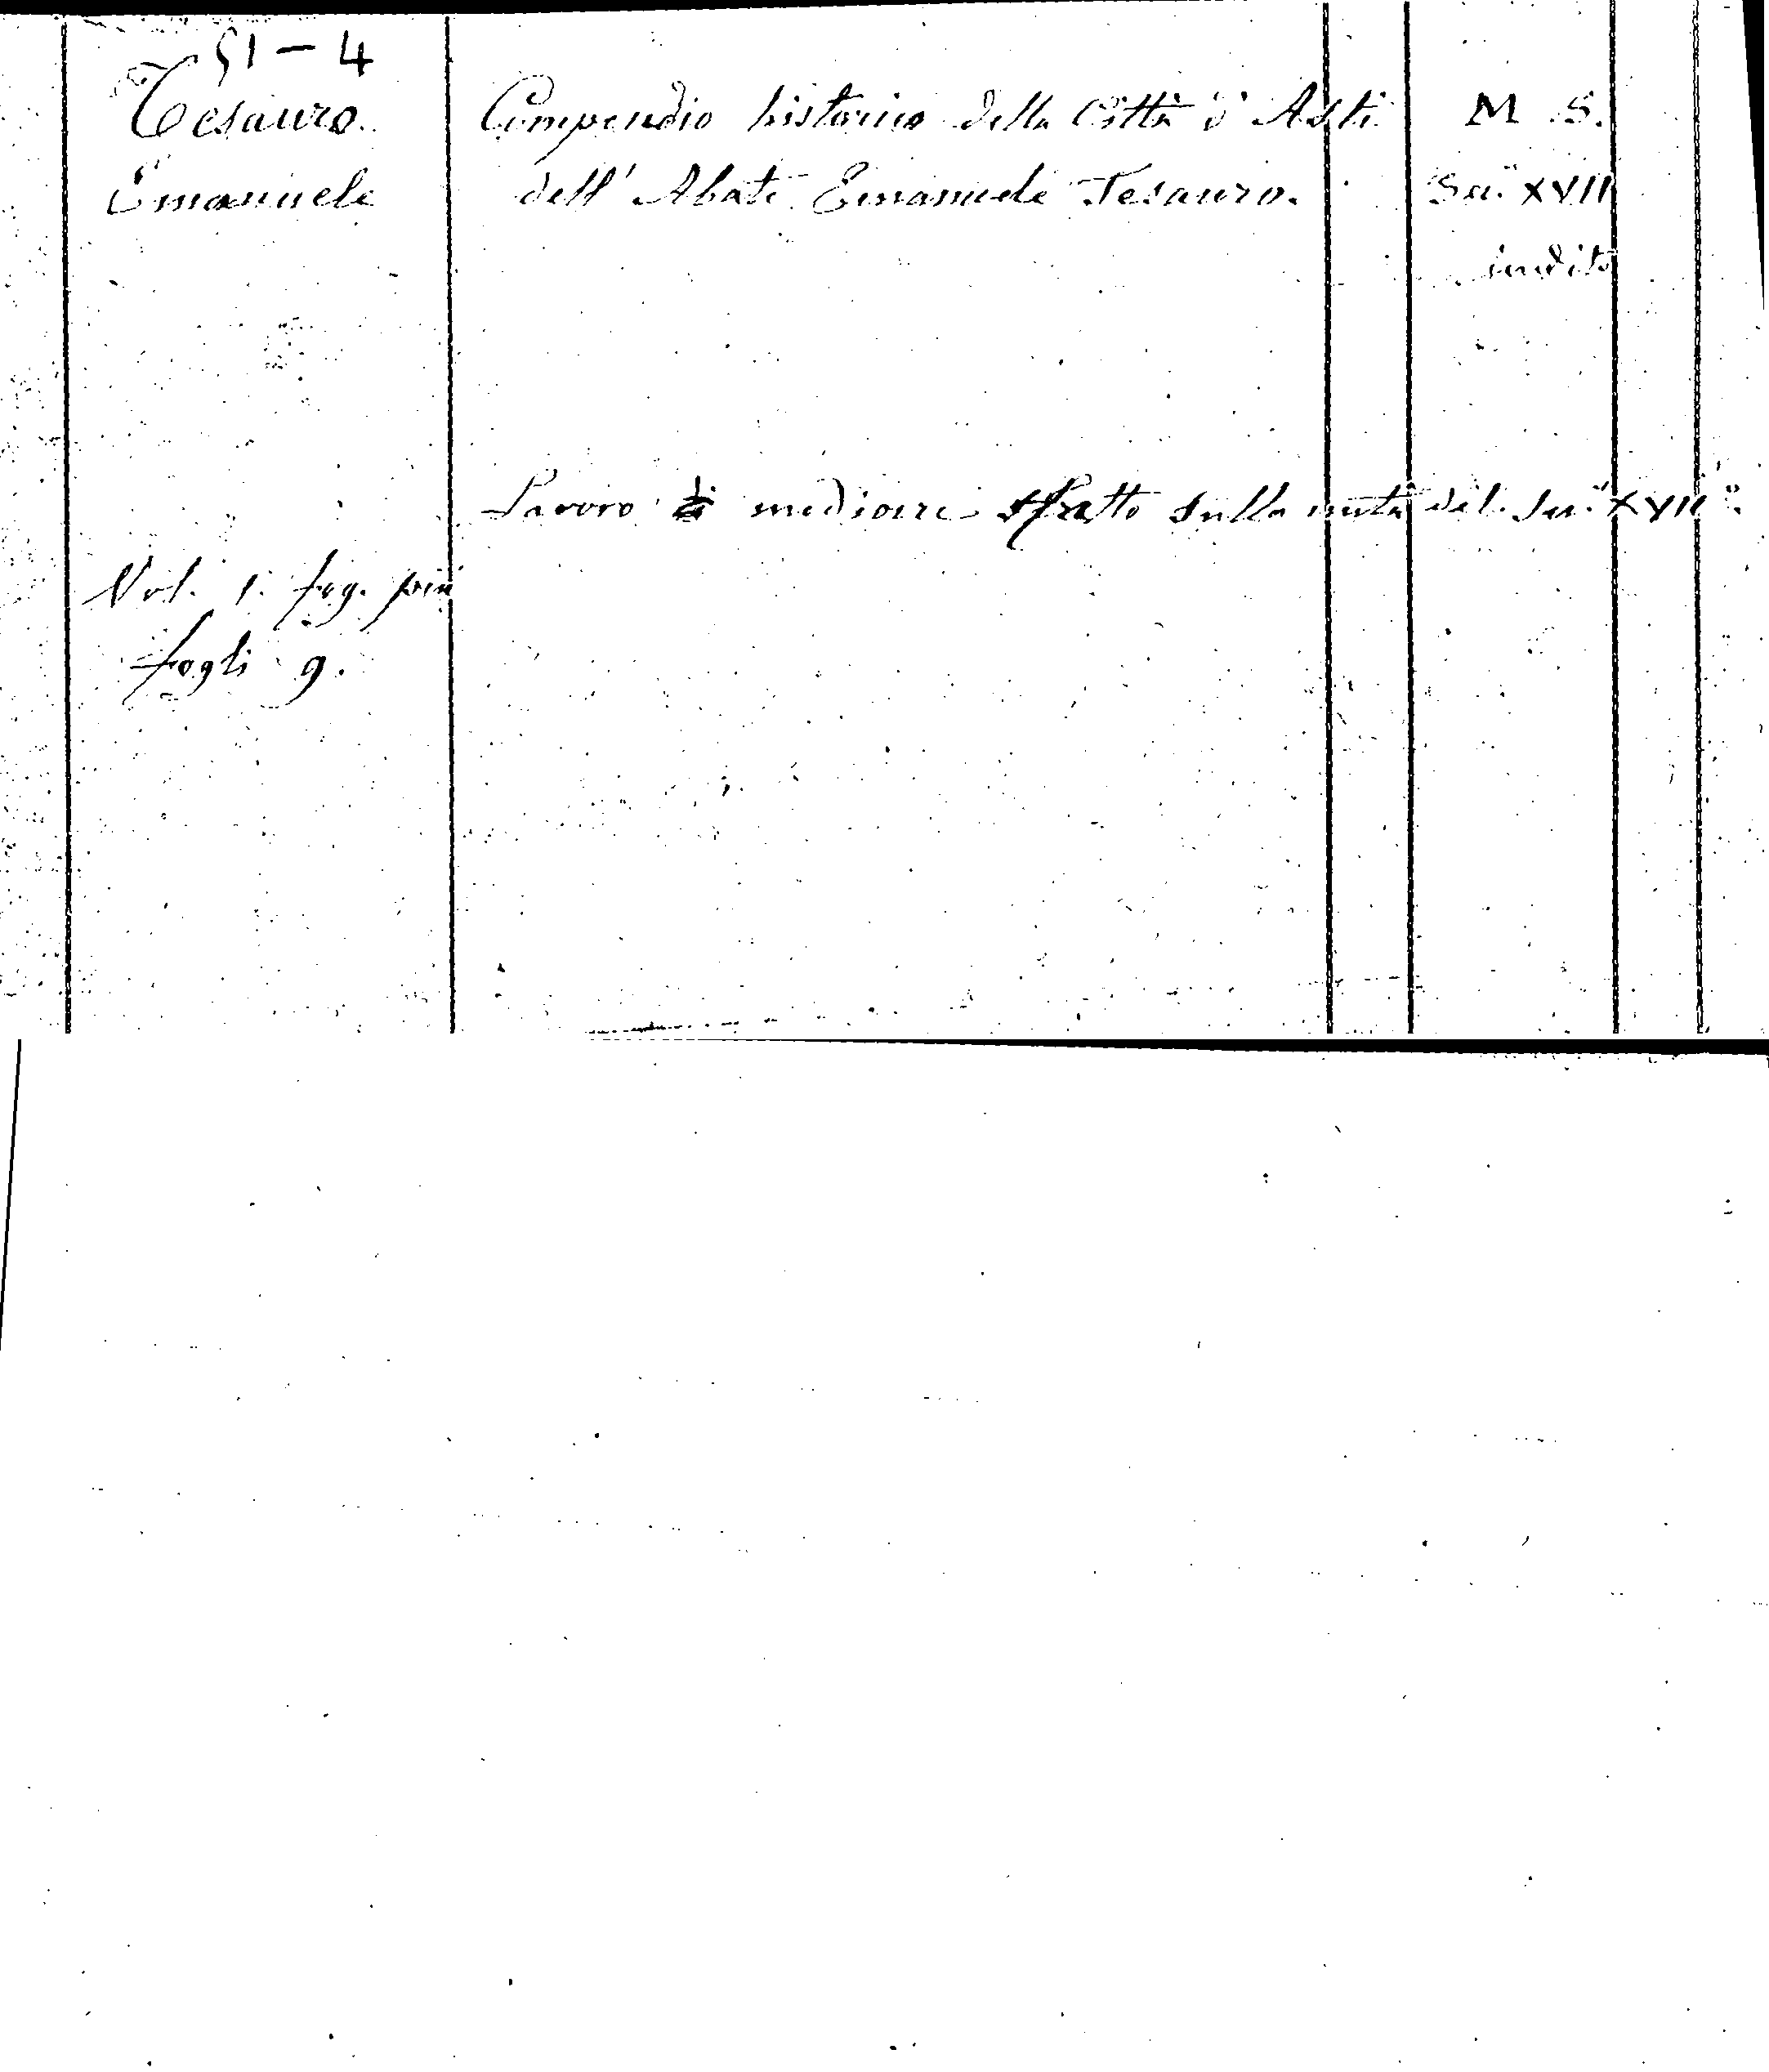 51 - 4
Tesauro
Emanuele
Compendio historico della Città d'Asti
dell'Abate Emanuele Tesauro.
M. S.
Sec.º XVII
inedito
Lavoro di mediocre fatto sulla metà del Sec.º XVIIº.
Vol. 1. fog. pic
fogli 9.